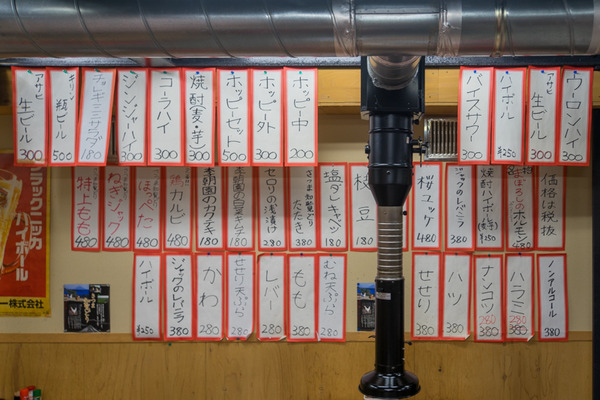 アサヒ
生ビール
300
キリン
瓶ビール
500
180
ジンジャーハイ
300
コーラハイ
300
焼酎(麦・芋)
300
ホッピーセット
500
ホッピー外
300
ホッピー中
200
バイスサワー
300
ハイボール
¥250
アサヒ
生ビール
300
ウーロンハイ
300
特上もも
480
ねぎジャック
480
ほっぺた
480
鶏カルビ
480
本韓国のカクテキ
180
180
セロリの浅漬け
280
たたき
380
塩ダレキャベツ
180
枝豆
180
桜ユッケ
480
ジャックのレバニラ
380
焼酎ハイボール
¥250
ホルモン
480
価格は税抜
ハイボール
¥250
ジャックのレバニラ
380
かわ
280
せせり天ぷら
280
レバー
280
もも
380
むね天ぷら
280
せせり
380
ハツ
380
ナンコツ
280
380
ハラミ
280
380
ノンアルコール
380
ブラックニッカの
ハイボール
ー株式会社